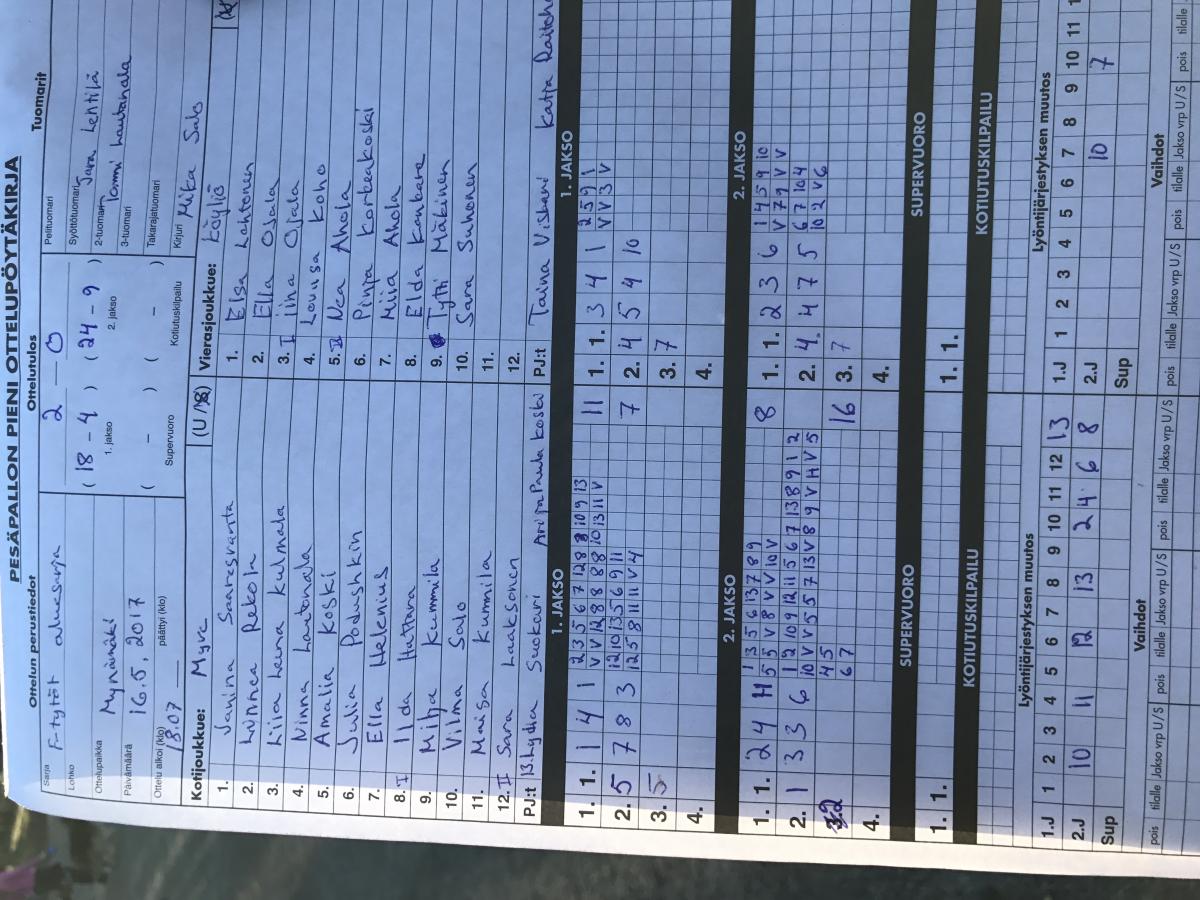 PESÄPALLON PIENI OTTELUPÖYTÄKIRJA
Ottelun perustiedot Ottelutulos Tuomarit
Sarja F-tytöt aluesarja
Lohko
Ottelupaikka Mynämäki
Päivämäärä 16.5.2017
Ottelu alkoi (klo) 18.07 päättyi (klo)
2 — 0
( 18 - 4 ) ( 24 - 9 )
1. jakso 2. jakso
( - ) ( - )
Supervuoro Kotiutuskilpailu
Pelituomari
Syöttötuomari
2-tuomari Jara Lehtilä
3-tuomari Tommi Lautanala
Takarajatuomari
Kirjuri Mika Salo
Kotijoukkue: Myve
1. Janina Saaresranta
2. Linnea Rekola
3. Liia Leena Kulmala
4. Ninna Lautanala
5. Amalia Koski
6. Julia Podushkin
7. Ella Helenius
8. I Ilda Hattara
9. Milja Kummila
10. Vilma Salo
11. Maisa Kummila
12. II Sara Laaksonen
PJ:t 13. Lydia Suokuri
Vierasjoukkue: Köyliö
1. Elsa Lahtonen
2. Ella Ojala
3. I Iina Ojala
4. Louisa Koho
5. II Nea Ahola
6. Pinja Korkeakoski
7. Miia Ahola
8. Elda Kankare
9. Tytti Mäkinen
10. Sara Suhonen
11.
12.
PJ:t Taina Viskeri Katja
1. JAKSO 1. JAKSO
1. 1. 1 4 1 11
2. 5 7 8 3 7
3. 5
4.
1. 1. 3 4 1 2 5 9 1
V V 3 V
2. 4 5 4 10
3. 7
4.
2. JAKSO 2. JAKSO
1. 1. 2 4 11 1 3 5 6 13 7 8 9 8
5 5 V 8 V V 10 V
2. 1 3 3 6 1 2 10 9 12 11 5 6 7 13 8 9 1 2
10 V V 5 5 7 13 V 8 9 V H V 5
3. 2 4 5 16
6 7
4.
1. 1. 2 3 6 1 4 5 9 10
V 7 9 V V
2. 4. 4 7 5 6 7 10 4
10 2 V 6
3. 7
4.
SUPERVUORO SUPERVUORO
1. 1. 1. 1.
KOTIUTUSKILPAILU KOTIUTUSKILPAILU
Lyöntijärjestyksen muutos Lyöntijärjestyksen muutos
1.J 1 2 3 4 5 6 7 8 9 10 11 12 13
2.J 10 11 12 13 2 4 6 8
Sup
1.J 1 2 3 4 5 6 7 8 9 10 11
2.J 10 7
Sup
Vaihdot Vaihdot
pois tilalle Jakso vrp U/S pois tilalle Jakso vrp U/S pois tilalle Jakso vrp U/S
pois tilalle Jakso vrp U/S pois tilalle Jakso vrp U/S pois tilalle